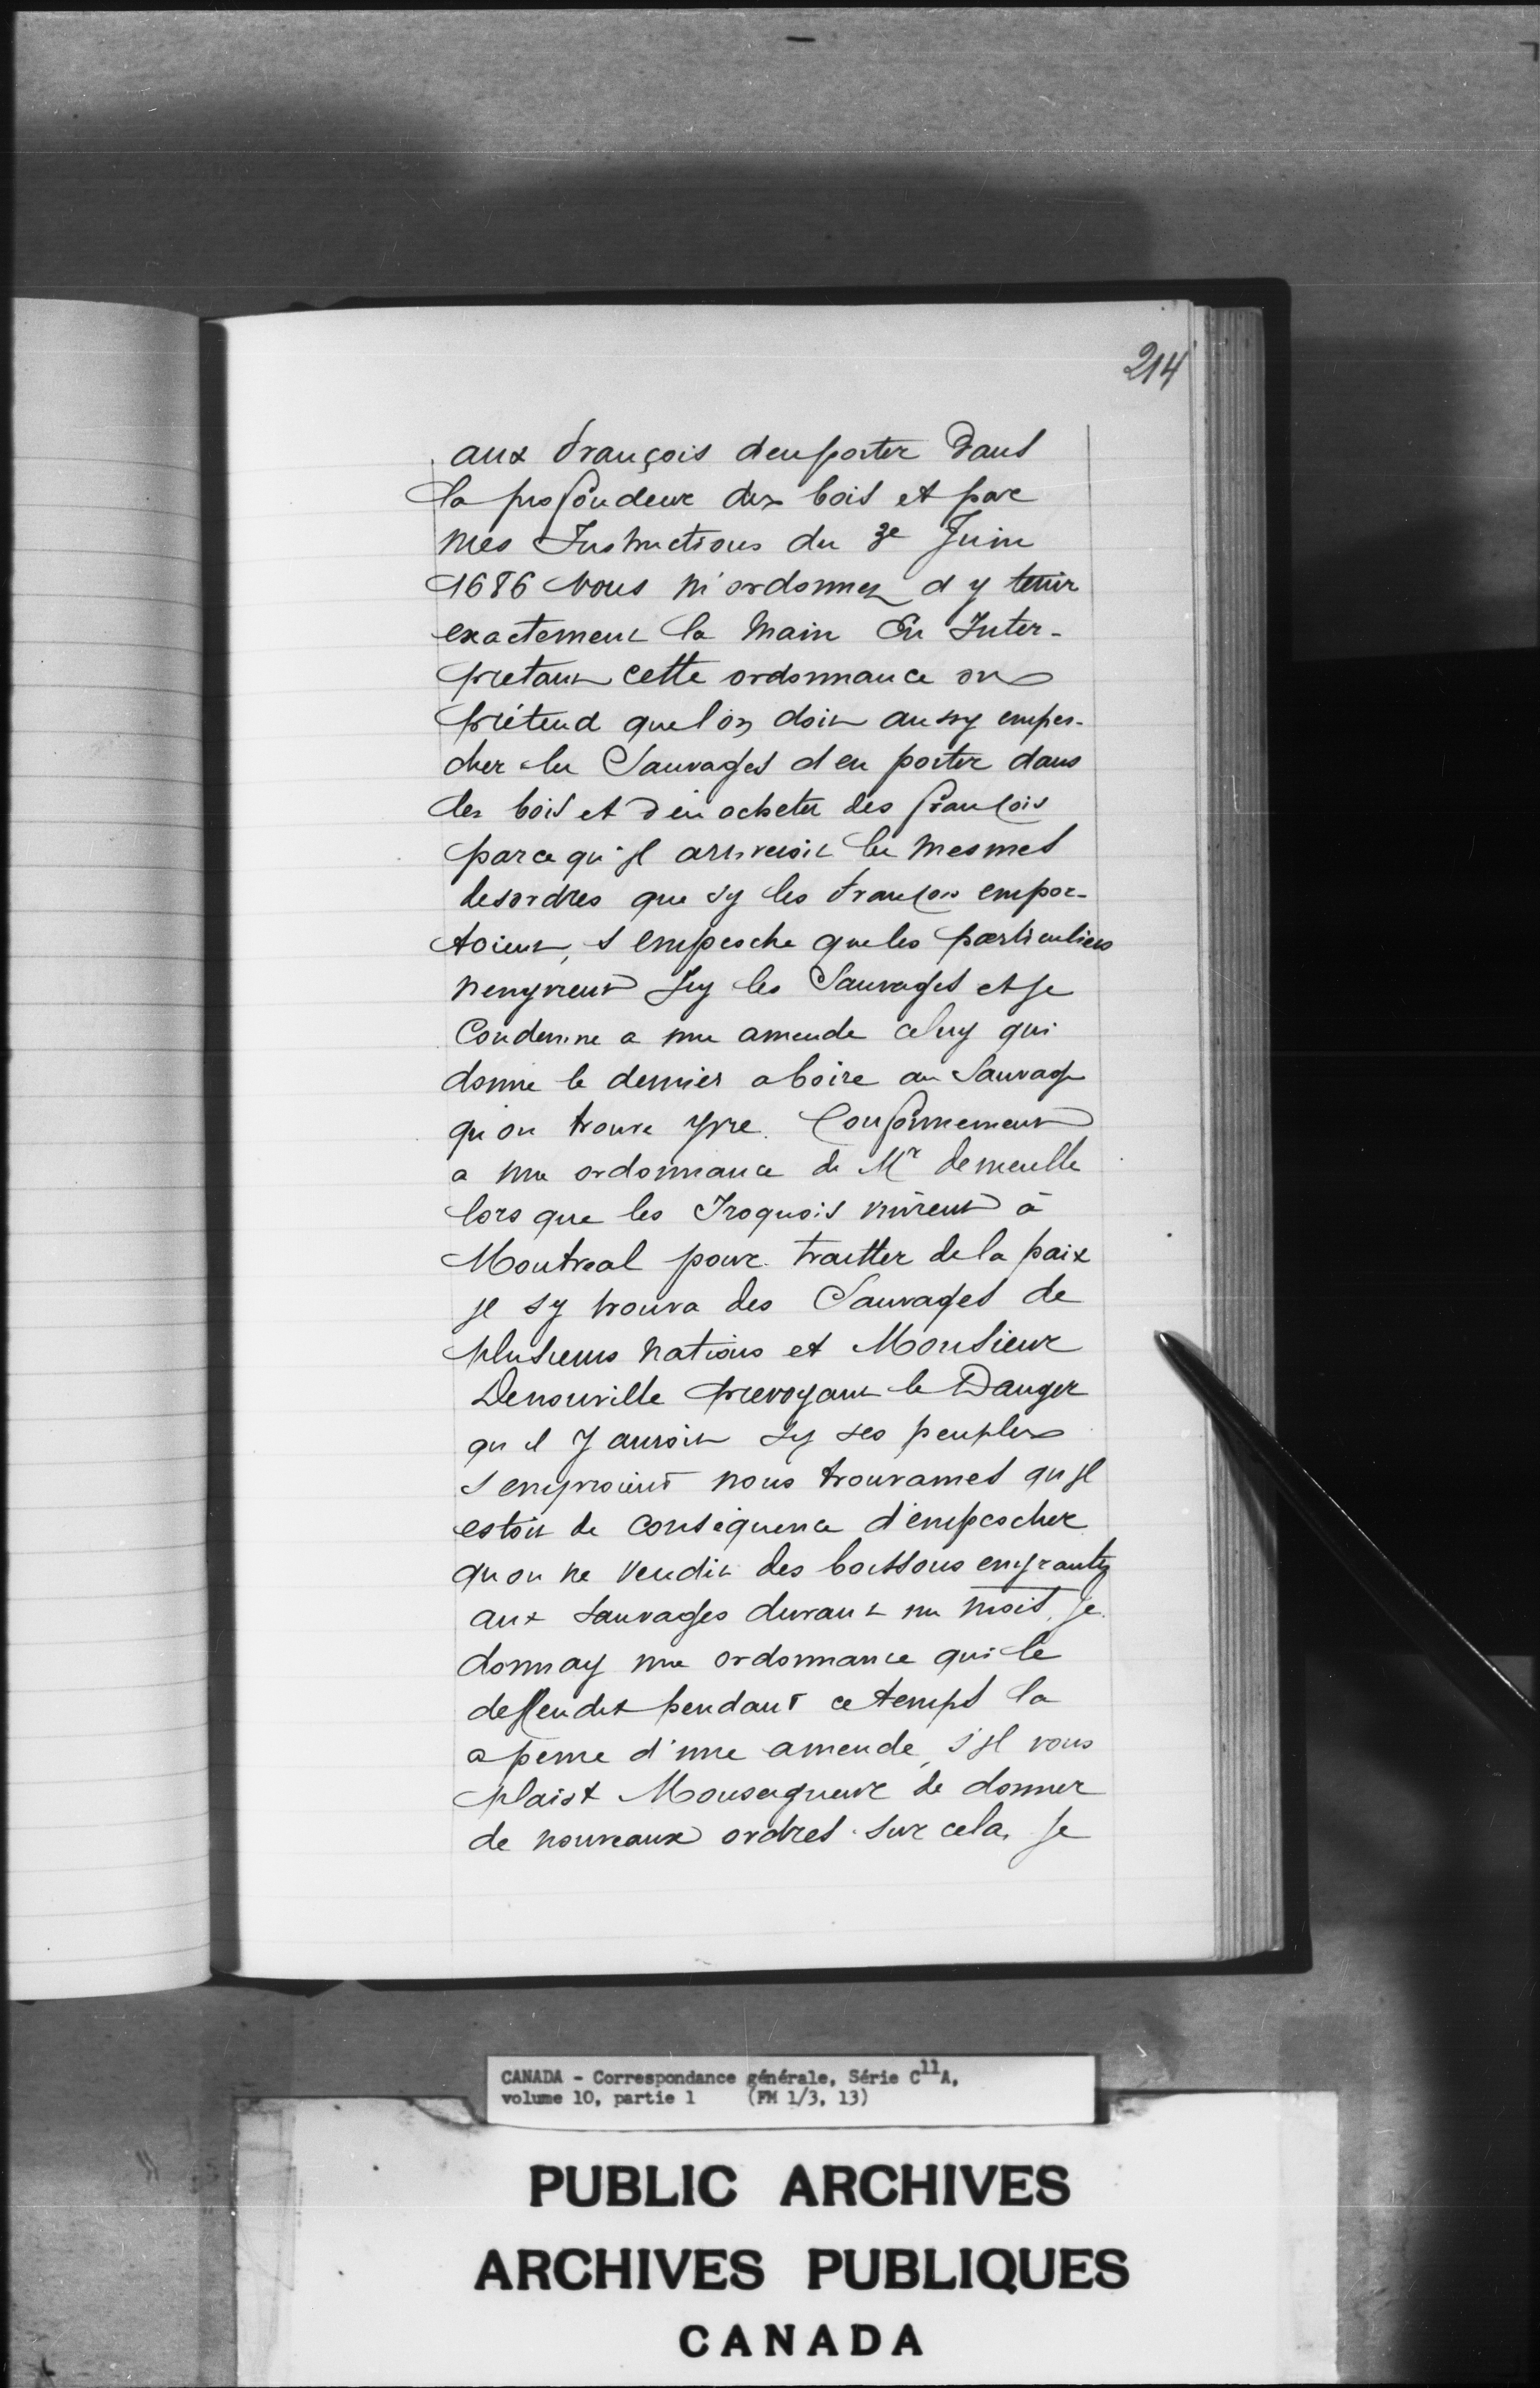 214
aux françois d'enporter Dans
la profondeur des bois et par
mes Instructions du 3e Juin
1686 vous m'ordonnez d y tenir
exactement la main En Inter-
pretant cette ordonnance on
prétend que l'on doit aussy empes-
cher les Sauvages d en porter dans
les bois et d'en acheter des françois
parce qu'jl arriveroit les mesmes
desordres que sy les françois empor-
toient, J empesche que les particuliers
nenyvrent Icy les Sauvages et Je
Condemne a une amende celuy qui
donne le dernier a boire au Sauvage
qu on trouve yvre. Conformement
a une ordonnance de Mr demeulle
lors que les Iroquois vinrent à
Montreal pour traitter de la paix
Jl s y trouva des Sauvages de
plusieurs nations et Monsieur
Denonville prevoyant le Danger
qu il y auroit sy ses peuples
s enyvroient nous trouvames qu Jl
estoit de consequence d'empescher
qu on ne vendit des boissons enyvrantes
aux sauvages durant un mois, Je
donnay une ordonnance qui le
deffendit pendant ce temps la
a peine d'une amende, s'Jl vous
plaist Monseigneur de donner
de nouveaux ordres sur cela, Je
CANADA - Correspondance générale, Série C11A,
volume 10, partie 1 (FM 1/3, 13)
PUBLIC ARCHIVES
ARCHIVES PUBLIQUES
CANADA